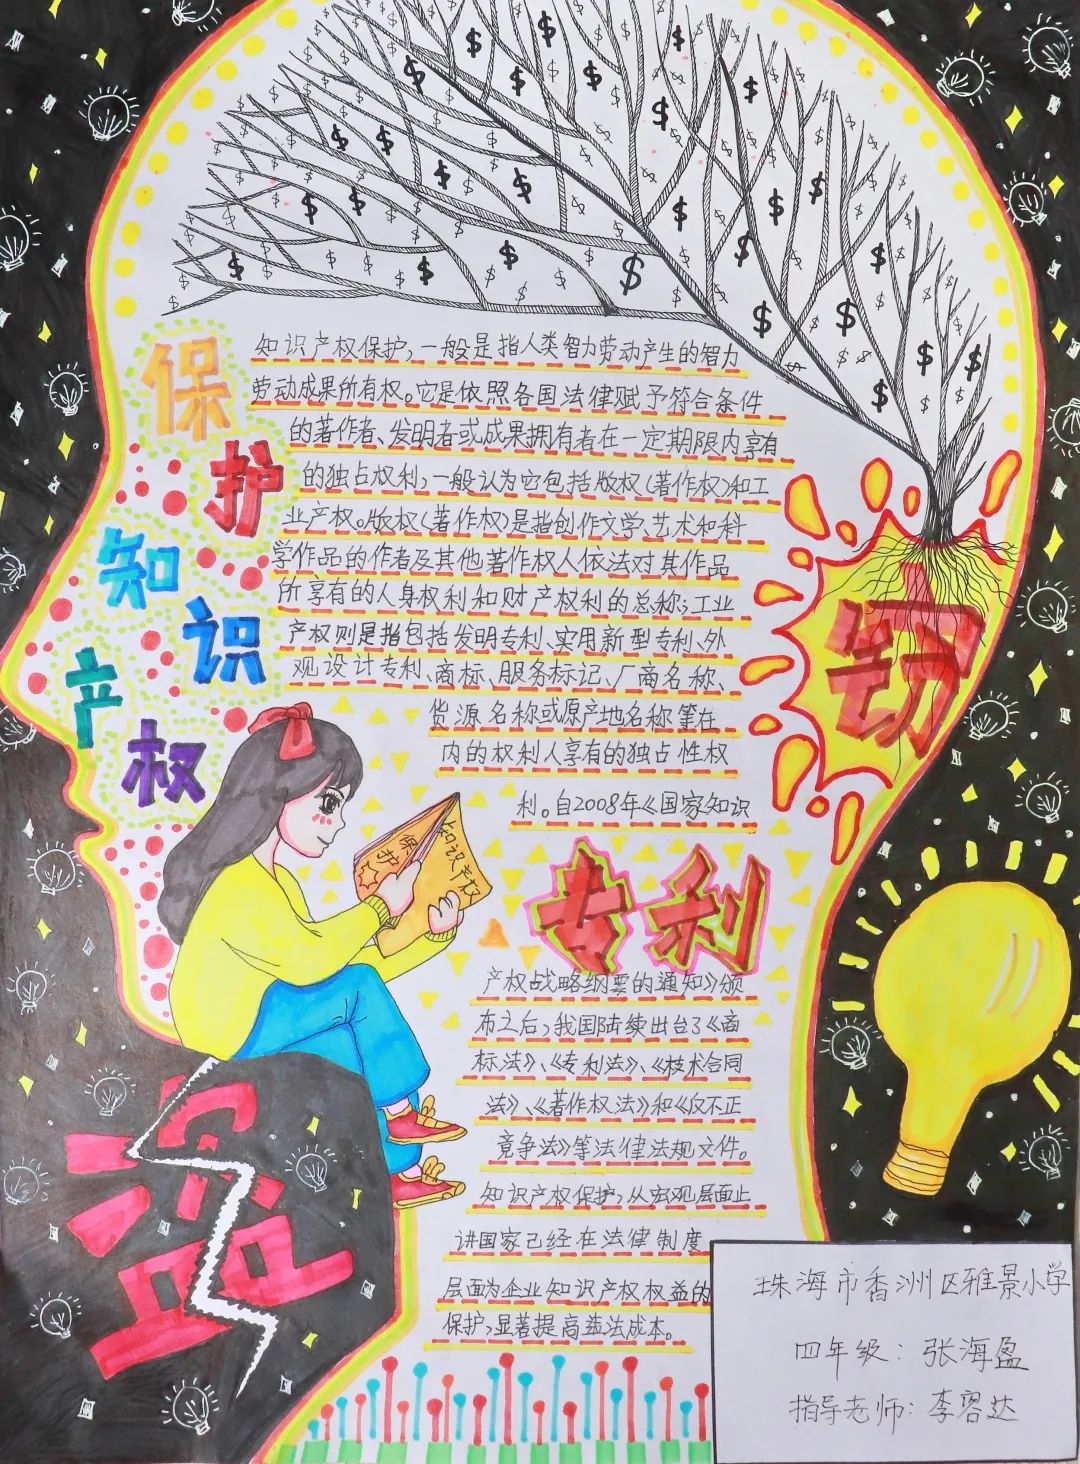 保护知识产权
知识产权保护，一般是指人类智力劳动产生的智力
劳动成果所有权。它是依照各国法律赋予符合条件
的著作者、发明者或成果拥有者在一定期限内享有
的独占权利，一般认为它包括版权（著作权）和工
业产权。版权（著作权）是指创作文学、艺术和科
学作品的作者及其他著作权人依法对其作品
所享有的人身权利和财产权利的总称；工业
产权则是指包括发明专利、实用新型专利、外
观设计专利、商标、服务标记、厂商名称、
货源名称或原产地名称等在
内的权利人享有的独占性权
利。自2008年《国家知识
保护
知识产权
窃
专利
产权战略纲要的通知》颁
布之后，我国陆续出台了《商
标法》、《专利法》、《技术合同
法》、《著作权法》和《反不正
竞争法》等法律法规文件。
知识产权保护，从宏观层面上
讲国家已经在法律制度
层面为企业知识产权权益的
保护，显著提高违法成本。
盗
珠海市香洲区雅景小学
四年级：张海盈
指导老师：李容达